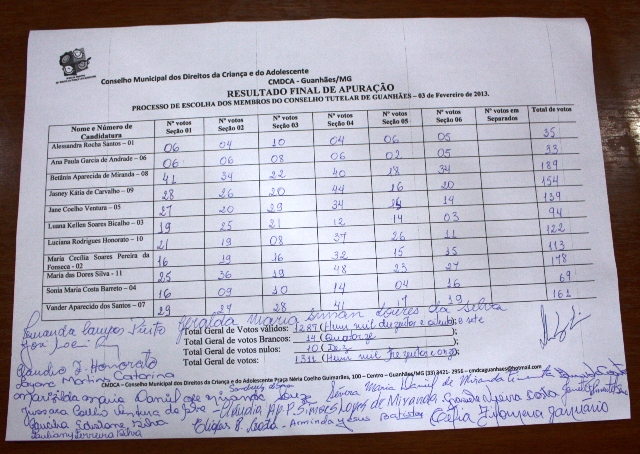 Conselho Municipal dos Direitos da Criança e do Adolescente
CMDCA - Guanhães/MG
RESULTADO FINAL DE APURAÇÃO
PROCESSO DE ESCOLHA DOS MEMBROS DO CONSELHO TUTELAR DE GUANHÃES – 03 de Fevereiro de 2013.
Nome e Número de Candidatura Nº votos Seção 01 Nº votos Seção 02 Nº votos Seção 03 Nº votos Seção 04 Nº votos Seção 05 Nº votos Seção 06 Nº votos em Separados Total de votos
Alessandra Rocha Santos – 01 06 04 10 04 06 05 35
Ana Paula Garcia de Andrade – 06 06 06 08 06 02 05 33
Betânia Aparecida de Miranda – 08 41 34 22 40 18 34 189
Jasney Kátia de Carvalho – 09 28 26 20 44 16 20 154
Jane Coelho Ventura – 05 27 20 29 34 14 139
Luana Kellen Soares Bicalho – 03 19 25 21 12 14 03 94
Luciana Rodrigues Honorato – 10 21 19 08 37 26 11 122
Maria Cecília Soares Pereira da Fonseca - 02 16 19 16 32 15 15 113
Maria das Dores Silva - 11 25 36 19 48 23 27 178
Sonia Maria Costa Barreto – 04 16 09 10 14 04 16 69
Vander Aparecido dos Santos – 07 29 27 28 41 17 19 161
Geralda Maria Siman Loures da Silva
Fernanda Campos Pinto
Total Geral de Votos válidos: 1287
Total Geral de votos Brancos: 14 (Quatorze
Total Geral de votos nulos: 10 (Dez
Total Geral de votos: 1311 (Hum mil trezentos e onze)
Claudio J. Honorato
CMDCA – Conselho Municipal dos Direitos da Criança e do Adolescente Praça Néria Coelho Guimarães, 100 – Centro – Guanhães/MG (33) 3421- 2956 – cmdcaguanhaes@hotmail.com
Maria Daniel de Miranda
Claudia Ap. P. Simões Lopes de Miranda
Costa - Arminda Jesus Batista